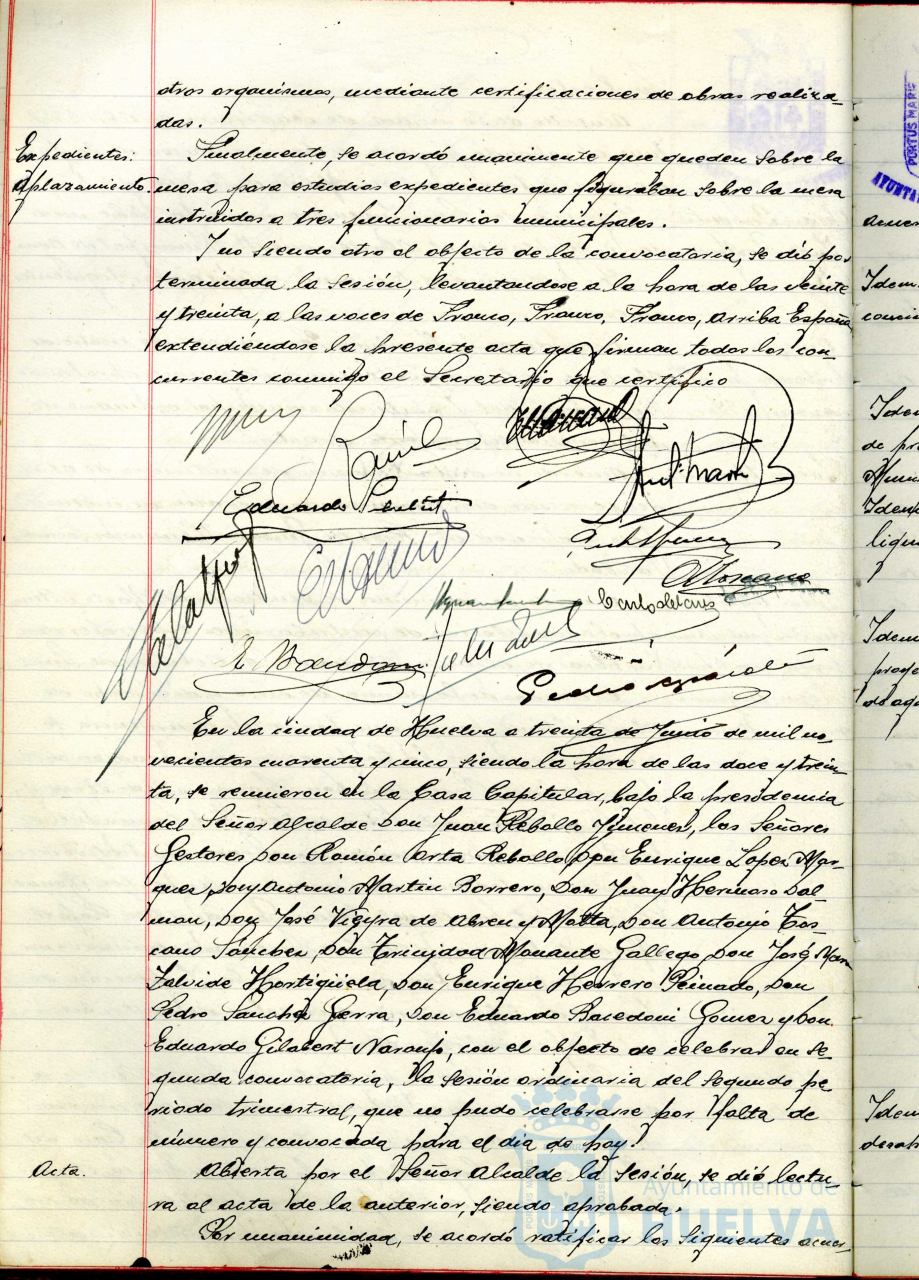 otros organismos, mediante certificaciones de obras realiza-
das.
Expedientes:
aplazamiento.
Finalmente, se acordó unanimente que queden sobre la
mesa para estudios expedientes que figuraban sobre la mesa
instruidos a tres funcionarios municipales.
Y no siendo otro el objecto de la convocatoria, se dió por
terminada la sesión, levantandose a la hora de las veinte
y treinta, a las voces de Franco, Franco, Franco, Arriba España
extendiendose la presente acta que firman todos los con-
currentes conmigo el Secretario que certifico
Eduardo
Carlos del
Pedro
En la ciudad de Huelva a treinta de Junio de mil no-
vecientos cuarenta y cinco, siendo la hora de las doce y trein-
ta, se reunieron en la Casa Capitular, bajo la presidencia
del Señor Alcalde Don Juan Rebollo Jimenez, los Señores
Gestores Don Ramón Arta Rebollo, Don Enrique Lopez Mar-
quez, Don Antonio Martin Borrero, Don Juan Hermoso Dal-
man, Don José Vieyra de Abreu y Motta, Don Antonio Tos-
cano Sánchez, Don Trinidad Monante Gallego, Don José Mar
Zalvide Hortigüela, Don Enrique Herrero Peinado, Don
Pedro Sanchez Gerra, Don Eduardo Bacedoni Gomez y Don
Eduardo Gilabert Naranjo, con el objecto de celebrar en se-
gunda convocatoria, la sesión ordinaria del segundo pe-
riodo trimestral, que no pudo celebrarse por falta de
número y convocada para el dia de hoy.
Acta.
Abierta por el Señor Alcalde la sesión, se dió lectu-
ra al acta de la anterior, siendo aprobada.
Por unanimidad, se acordó ratificar los siguientes acuer-
Ayuntamiento de
HUELVA
PORTUS MARIS